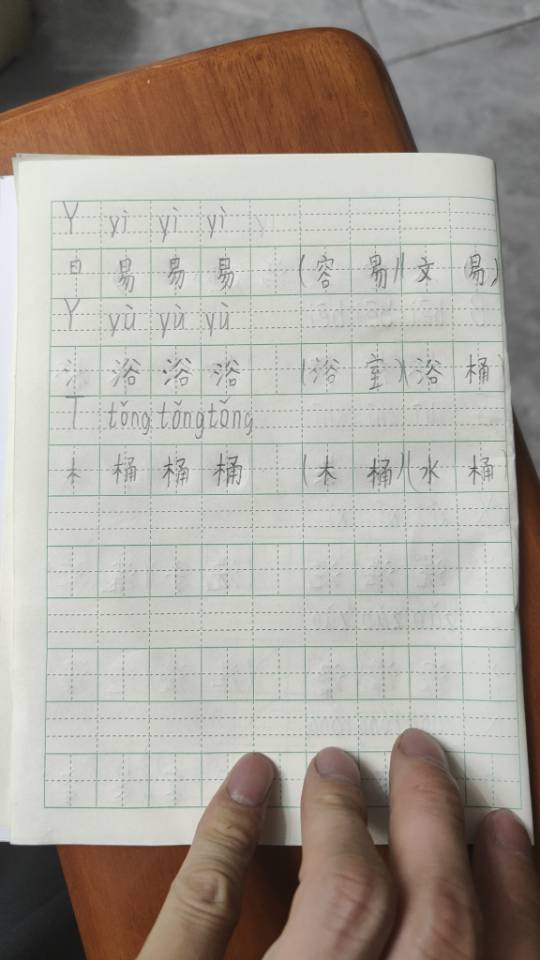 Y yì yì yì
日 易 易 易 (容易)(文易)
Y yù yù yù
氵 浴 浴 浴 (浴室)(浴桶)
T tǒng tǒng tǒng
木 桶 桶 桶 (木桶)(水桶)